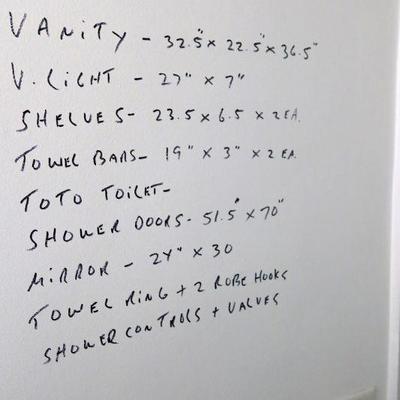 VANITY - 32.5" x 22.5" x 36.5"
V. LIGHT - 27" x 7"
SHELVES - 23.5 x 6.5 x 2 EA.
TOWEL BARS - 19" x 3" x 2 EA.
TOTO TOILET -
SHOWER DOORS - 51.5" x 70"
MIRROR - 24" x 30
TOWEL RING + 2 ROBE HOOKS
SHOWER CONTROLS + VALVES